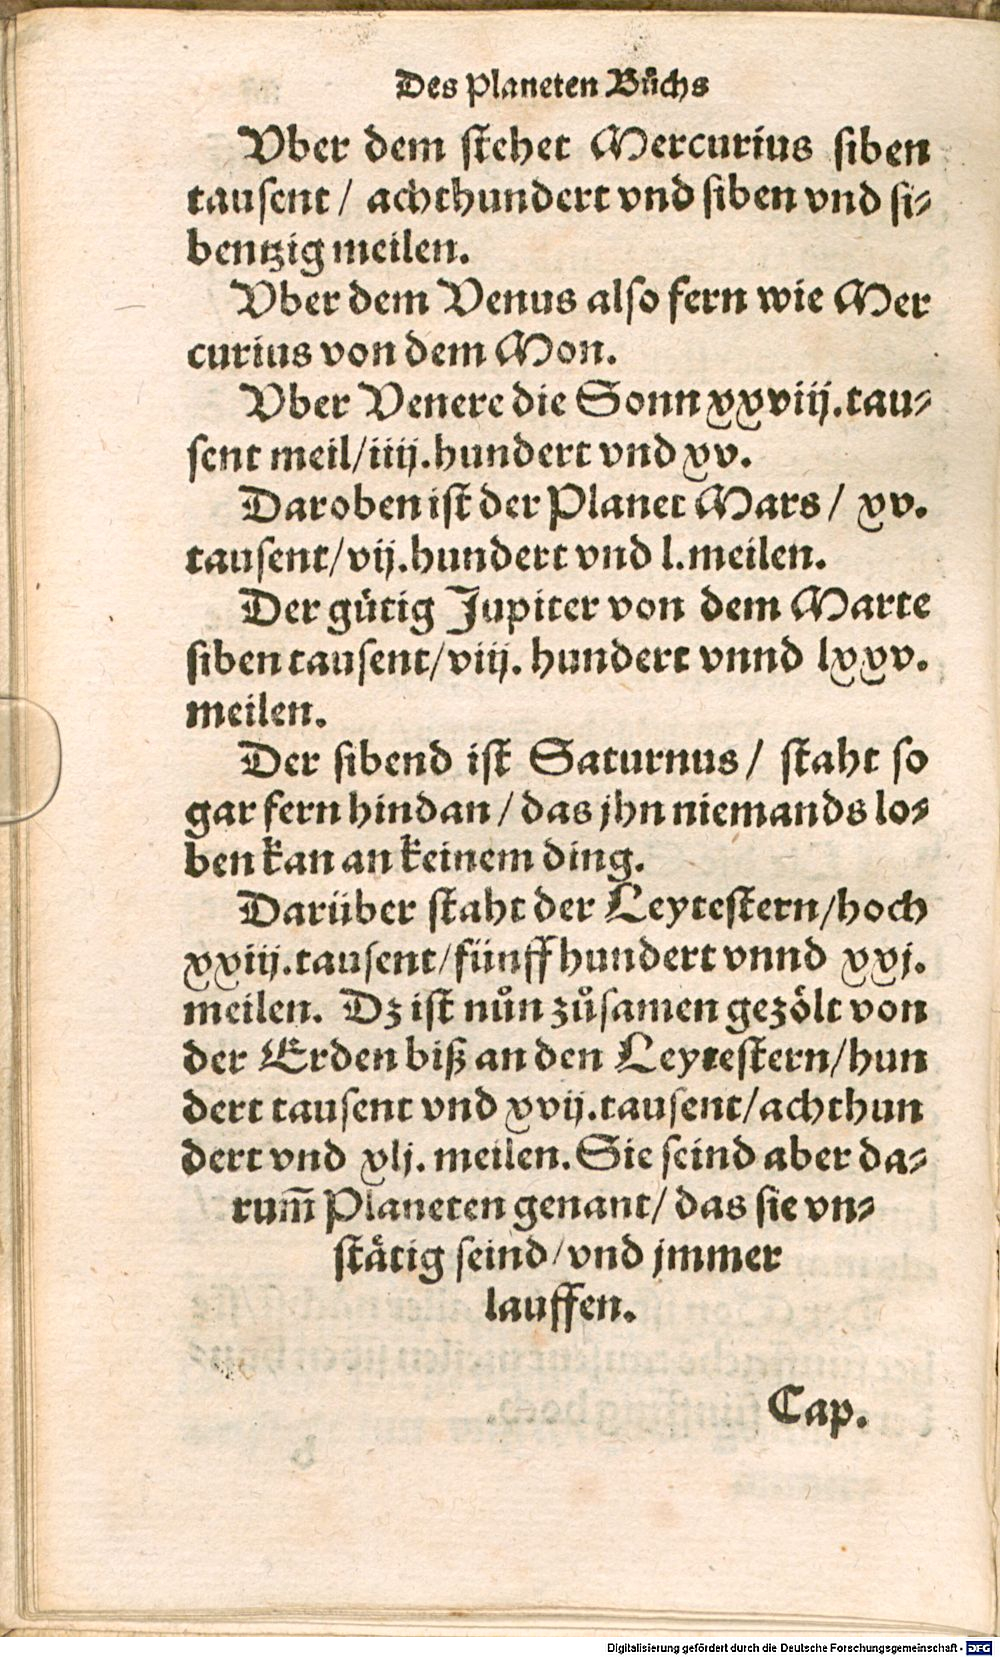 Des Planeten Bůchs
Vber dem stehet Mercurius siben
tausent / achthundert vnd siben vnd si⸗
bentzig meilen.
Vber dem Venus also fern wie Mer
curius von dem Mon.
Vber Venere die Sonn xxviij.tau⸗
sent meil/iiij.hundert vnd xv.
Daroben ist der Planet Mars / xv.
tausent/vij.hundert vnd l.meilen.
Der gütig Jupiter von dem Marte
siben tausent/viij. hundert vnnd lxxv.
meilen.
Der sibend ist Saturnus / staht so
gar fern hindan / das jhn niemands lo⸗
ben kan an keinem ding.
Darüber staht der Leytestern/hoch
xxiij.tausent/fünff hundert vnnd xxj.
meilen. Dz ist nůn zůsamen gezölt von
der Erden biß an den Leytestern/hun
dert tausent vnd xvij.tausent/achthun
dert vnd xlj. meilen. Sie seind aber da⸗
rum̄ Planeten genant/ das sie vn⸗
stätig seind/vnd jmmer
lauffen.
Cap.
Digitalisierung gefördert durch die Deutsche Forschungsgemeinschaft - DFG